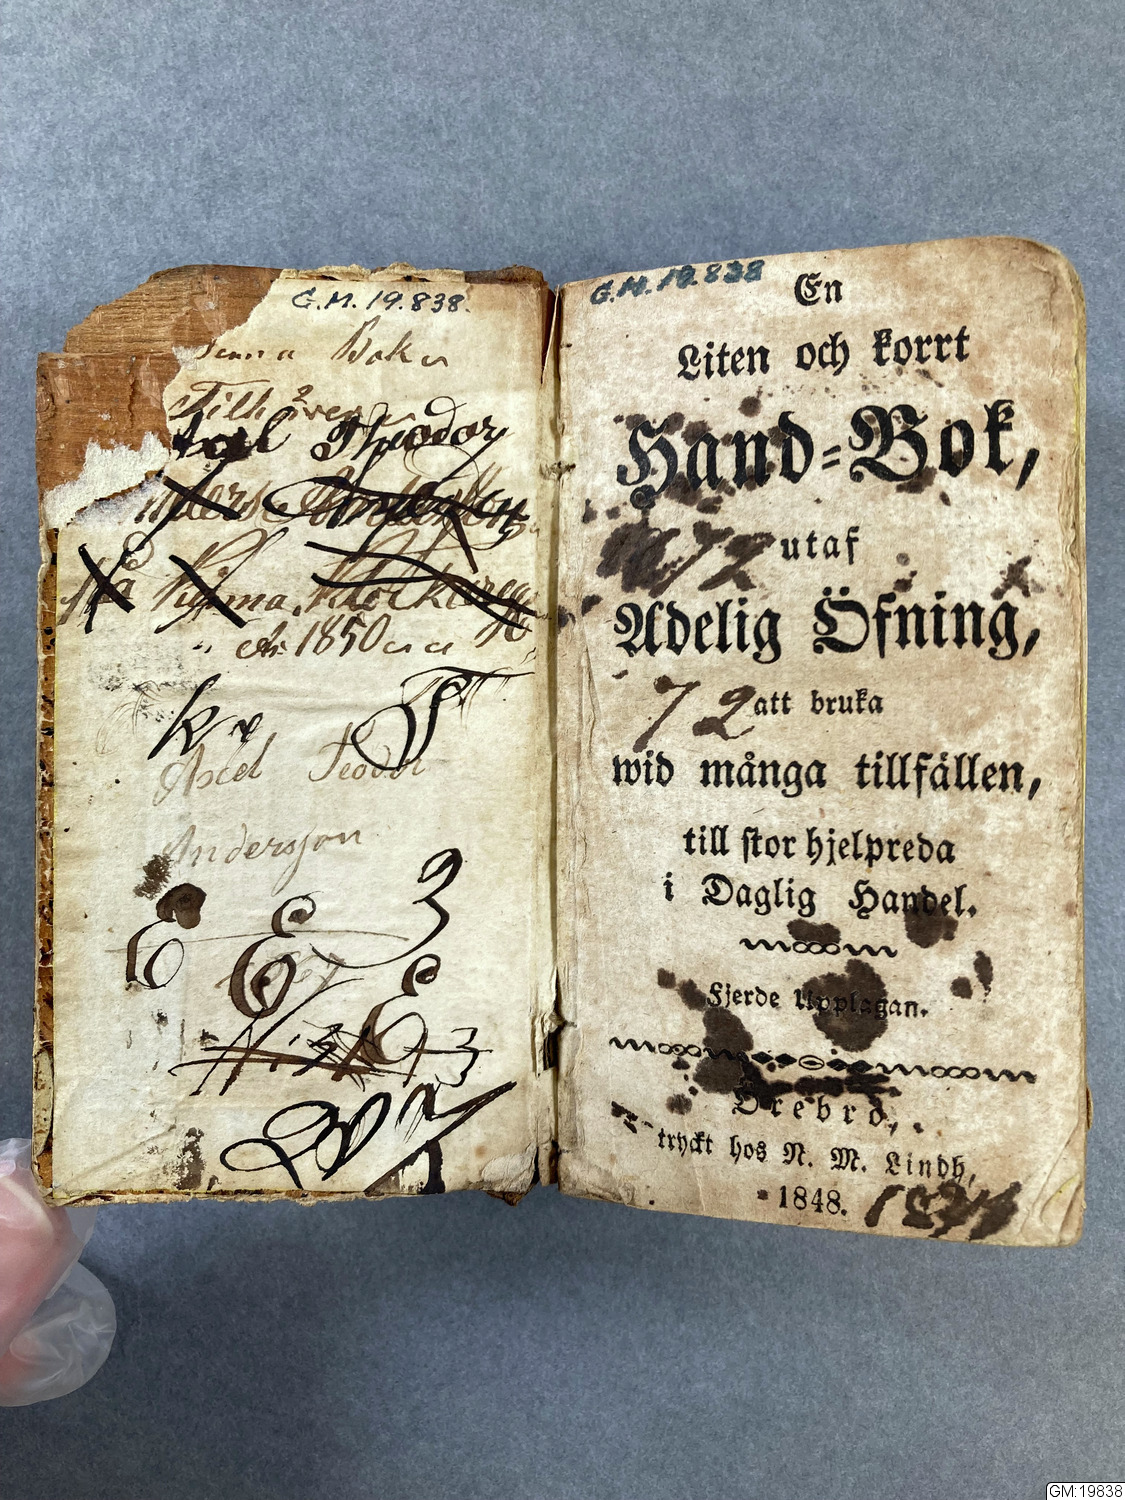 G.M. 19.838.
Denna Bok
Tilhörer
Axel Theodor
Anders Andersson
År 1850
Axel Teodor
Andersson
3
E E
E
3
G.M. 19.838
En
Liten och korrt
Hand-Bok,
72 utaf
Adelig Öfning,
72 att bruka
wid många tillfällen,
till stor hjelpreda
i Daglig Handel.
Fjerde Upplagan.
Örebro,
tryckt hos N. M. Lindh,
1848.
GM:19838